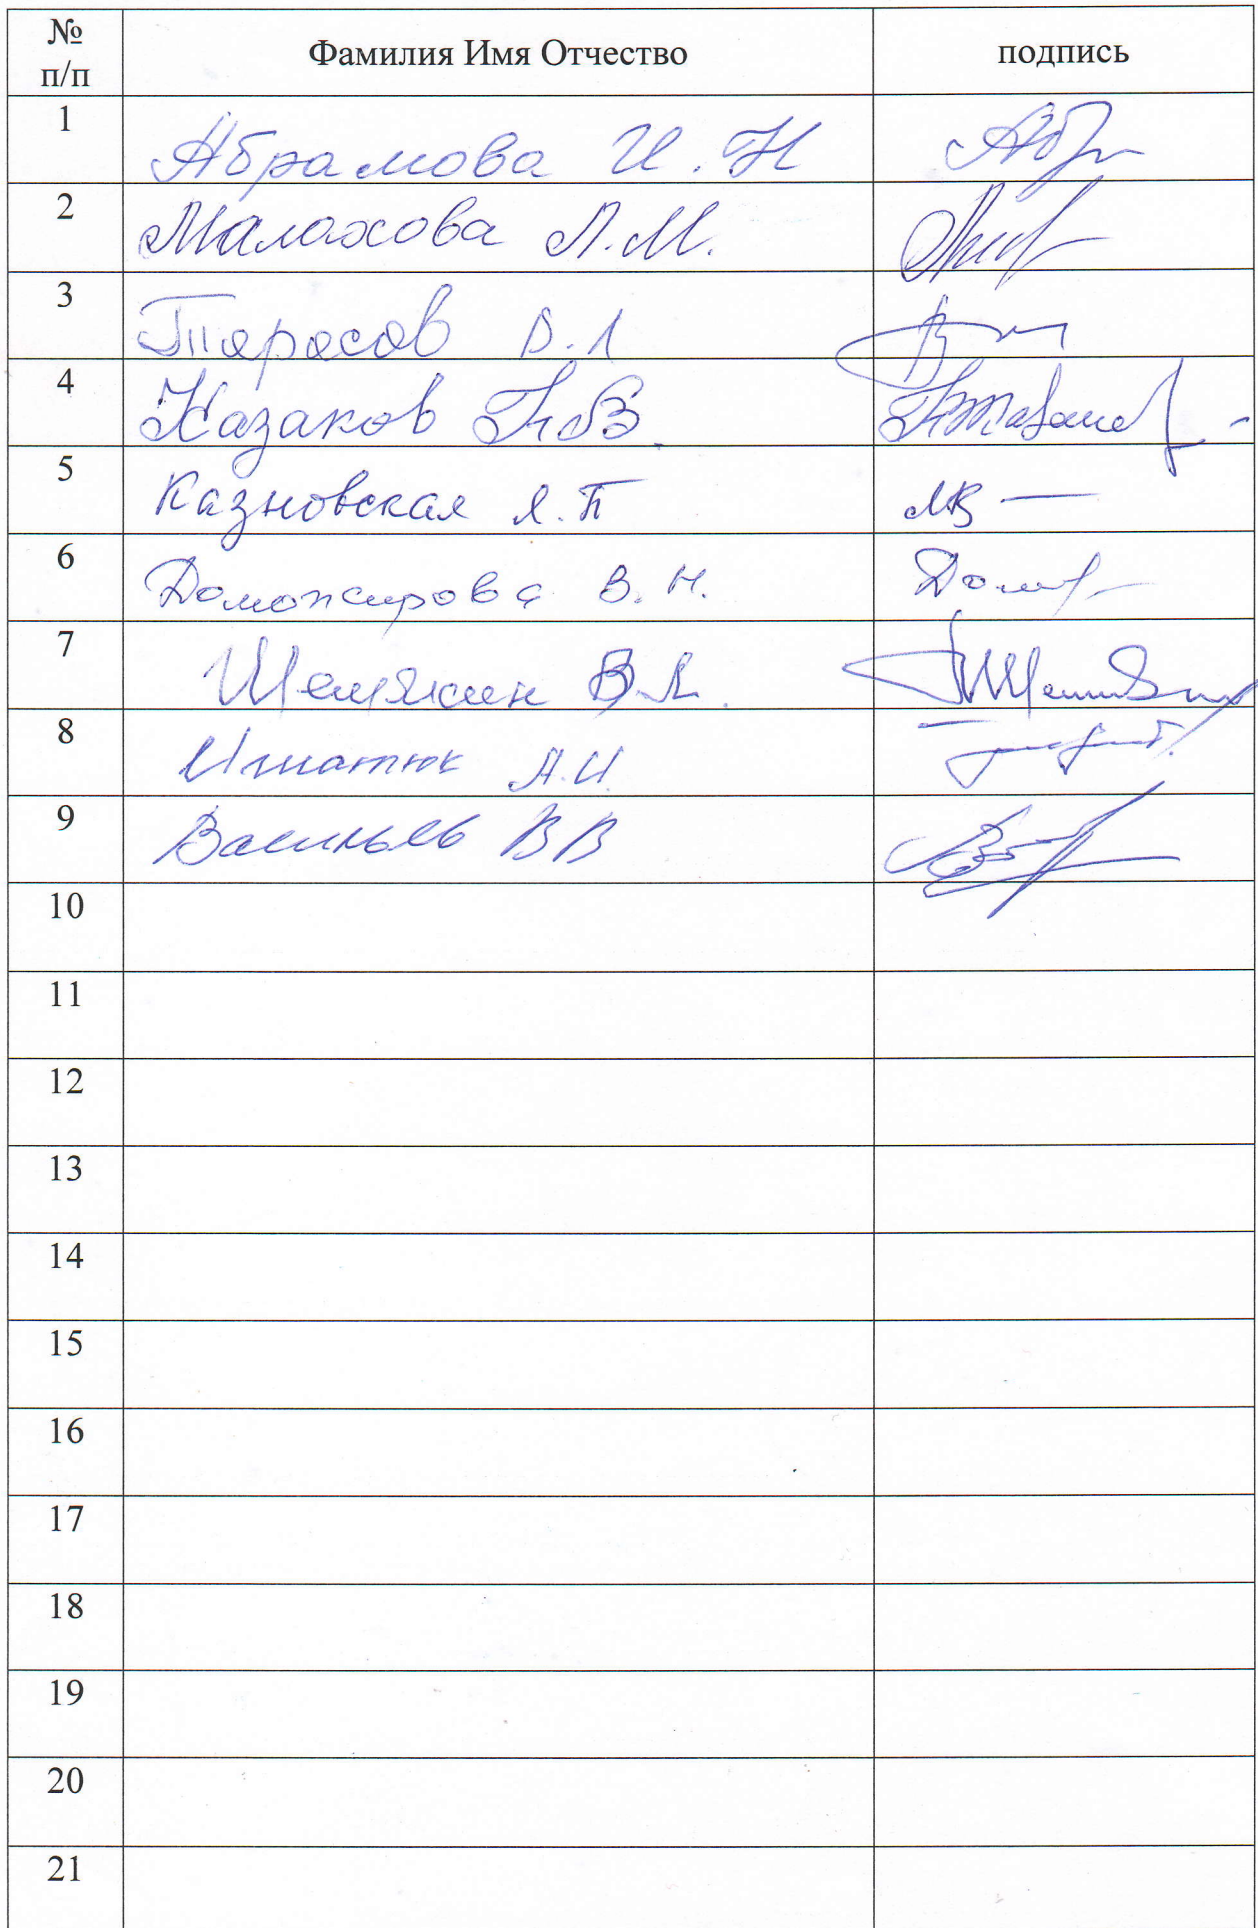 № п/п Фамилия Имя Отчество подпись
1 Абрамова И.Н
2 Малахова Л.М.
3 Тарасов В.Л
4 Казаков Г.В.
5 Казновская Л.П
6 Доможирова В.Н.
7 Шемякин В.Л.
8 Игнатюк А.И.
9 Васильев ВВ
10
11
12
13
14
15
16
17
18
19
20
21